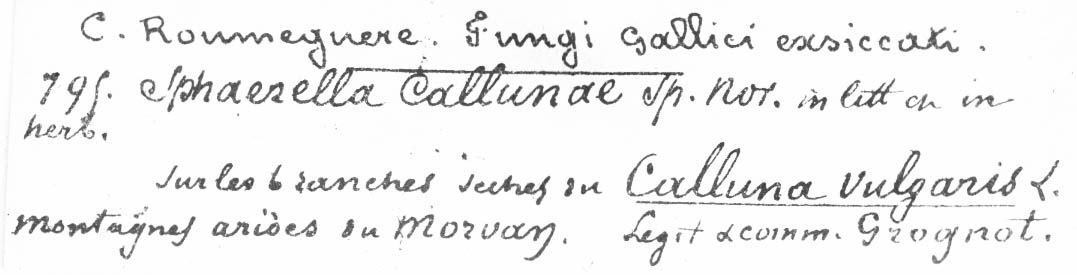 C. Roumeguere. Fungi Gallici exsiccati.
795. Sphaerella Callunae Sp. Nov. in litt et in
herb.
sur les branches seches du Calluna vulgaris L.
montagnes arides du Morvan. Legit & comm. Grognot.